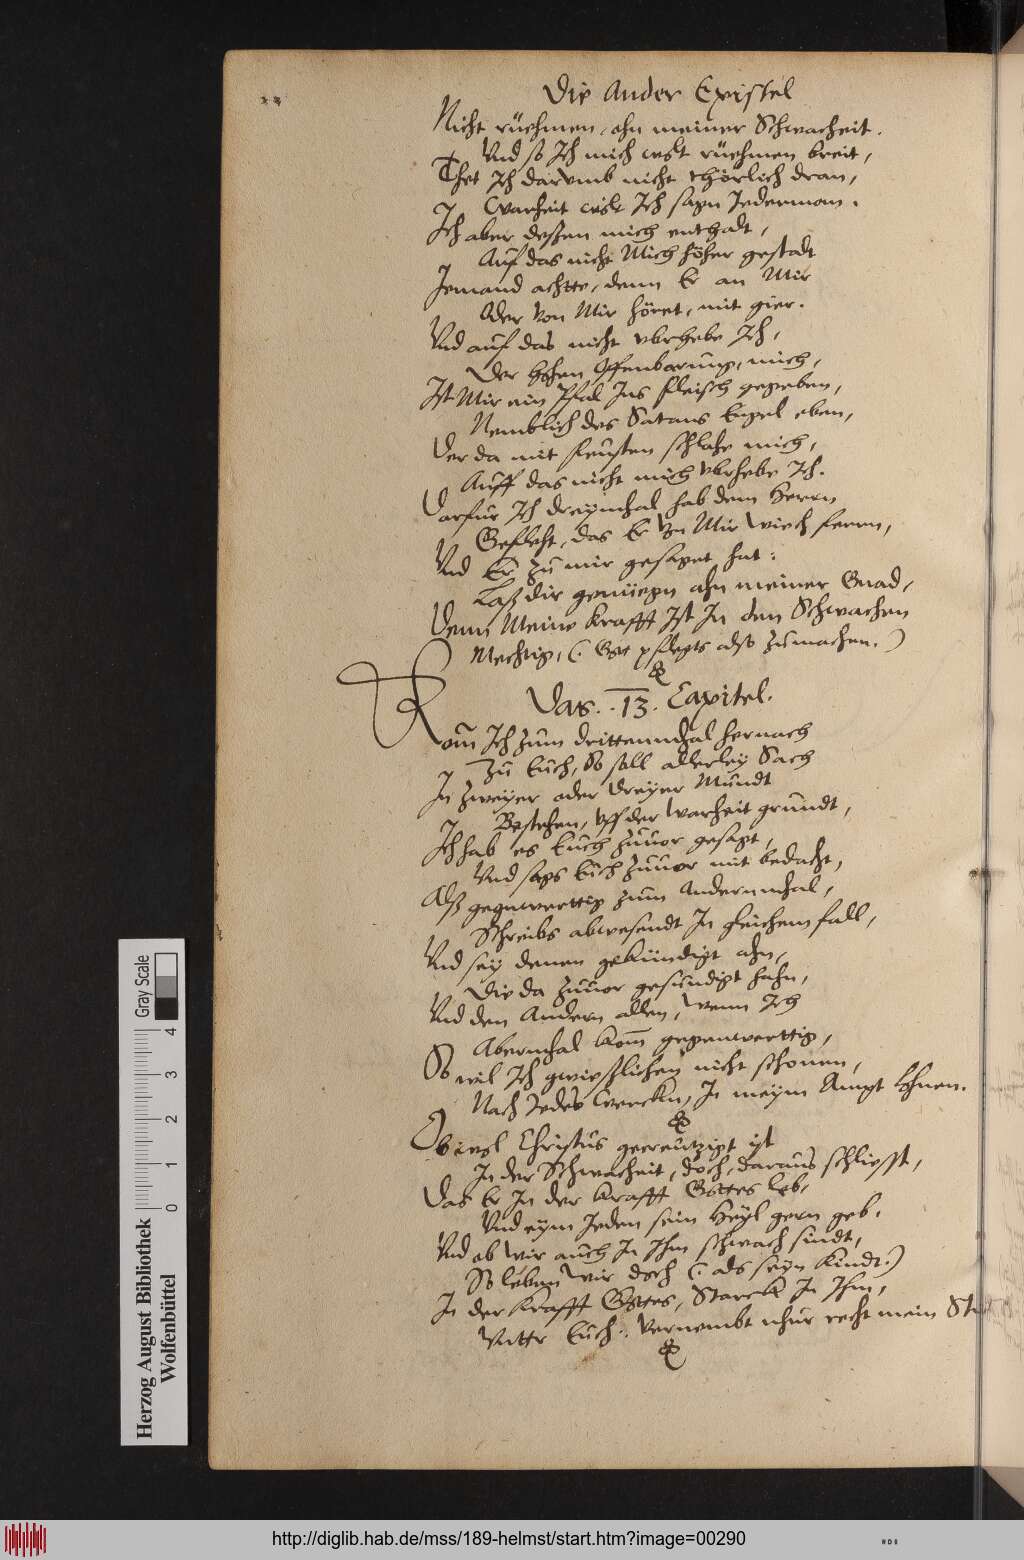 Die Ander Epistel
Nicht rüehmen, ohn meiner Schwacheit.
Vnd so Ich mich wolt rüehmen breit,
Thet Ich darvmb nicht thörlich dran,
Warheit wolt Ich sagn Jederman.
Ich aber deßen mich enthalt,
Auf das nicht Mich höher gestalt
Jemand achtte, denn Er an Mir
Oder von Mir höret, mit gier.
Vnd auf das nicht vbrhebe Ich,
Der hohen Offenbarung, mich,
Ist Mir ein Pfal Ins fleisch gegeben,
Nemblich des Satans Engel eben,
Der da mit feusten schlahe mich,
Auff das nicht mich vbrhebe Ich.
Darfür Ich dreymhal hab dem Herrn
Gefleht, das Er von Mir wich ferrn,
Vnd Er zu mir gesaget hat:
Laß dir genüegn ahn meiner Gnad,
Denn Meine Krafft Ist In den Schwachen
Mechtig, (: Gott pflegts also zumachen.)
Das. .13. Capitel.
Kom Ich zum drittennhal hernach
Zu Euch, So soll allerley Sach
In zweyer oder dreyer Mundt
Bestehen, vff der warheit grundt,
Ich hab es Euch zuuor gesagt,
Vnd sags Euch zuuor mit bedacht,
Alß gegnwerttig zum Andernmhal,
Schreibs abwesendt In gleichem fall,
Vnd sey denen gekündigt ahn,
Die da zuuor gesündigt hahn,
Vnd den Andern allen, wenn Ich
Abermhal kom gegenwerttig,
So wil Ich gwießlichen nicht schonen,
Nach Jedes wercken, In meym Ampt lohnen.
Ob wol Christus gecreutzigt ist
In der Schwacheit, doch, daraus schliesst,
Das Er In der Krafft Gottes leb,
Vnd eym Jeden sein Heyl gern geb.
Vnd ob wir auch In Ihm schwach sindt,
So leben wir doch (: als seyn Kindt:)
In der Krafft Gottes, Starck In Ihm,
Vnttr Euch: vernembt nhur recht mein
Herzog August Bibliothek
Wolfenbüttel
0 1 2 3 4
Gray Scale
http://diglib.hab.de/mss/189-helmst/start.htm?image=00290